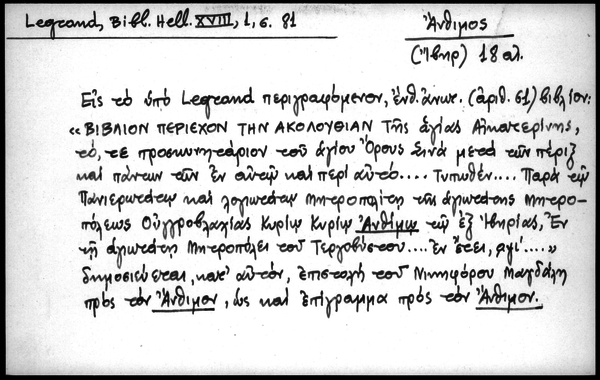 Legrand, Bibl. Hell. XVIII, 1, σ. 81
Ἄνθιμος
(Ἴβηρ) 18 αἰ.
Εἰς τὸ ὑπὸ Legrand περιγραφόμενον, ἐνθ. ἄνωτ. (ἀριθ. 61) βιβλίον:
«ΒΙΒΛΙΟΝ ΠΕΡΙΕΧΟΝ ΤΗΝ ΑΚΟΛΟΥΘΙΑΝ Τῆς ἁγίας Αἰκατερίνης,
τό, τε προσκυνητάριον τοῦ ἁγίου Ὄρους Σινᾶ μετὰ τῶν πέριξ
καὶ πάντων τῶν ἐν αὐτῷ καὶ περὶ αὐτό.... Τυπωθέν.... Παρὰ τῷ
Πανιερωτάτῳ καὶ λογιωτάτῳ Μητροπολίτῃ τῆς ἁγιωτάτης Μητρο-
πόλεως Οὐγγροβλαχίας Κυρίῳ Κυρίῳ Ἀνθίμῳ τῷ ἐξ Ἰβηρίας, Ἐν
τῇ ἁγιωτάτῃ Μητροπόλει τοῦ Τεργοβύστου.... ἐν ἔτει, αψι´....»
δημοσιεύεται, κατ' αὐτόν, ἐπιστολὴ τοῦ Νικηφόρου Μαγδάλη
πρὸς τὸν Ἄνθιμον, ὡς καὶ ἐπίγραμμα πρὸς τὸν Ἄνθιμον.